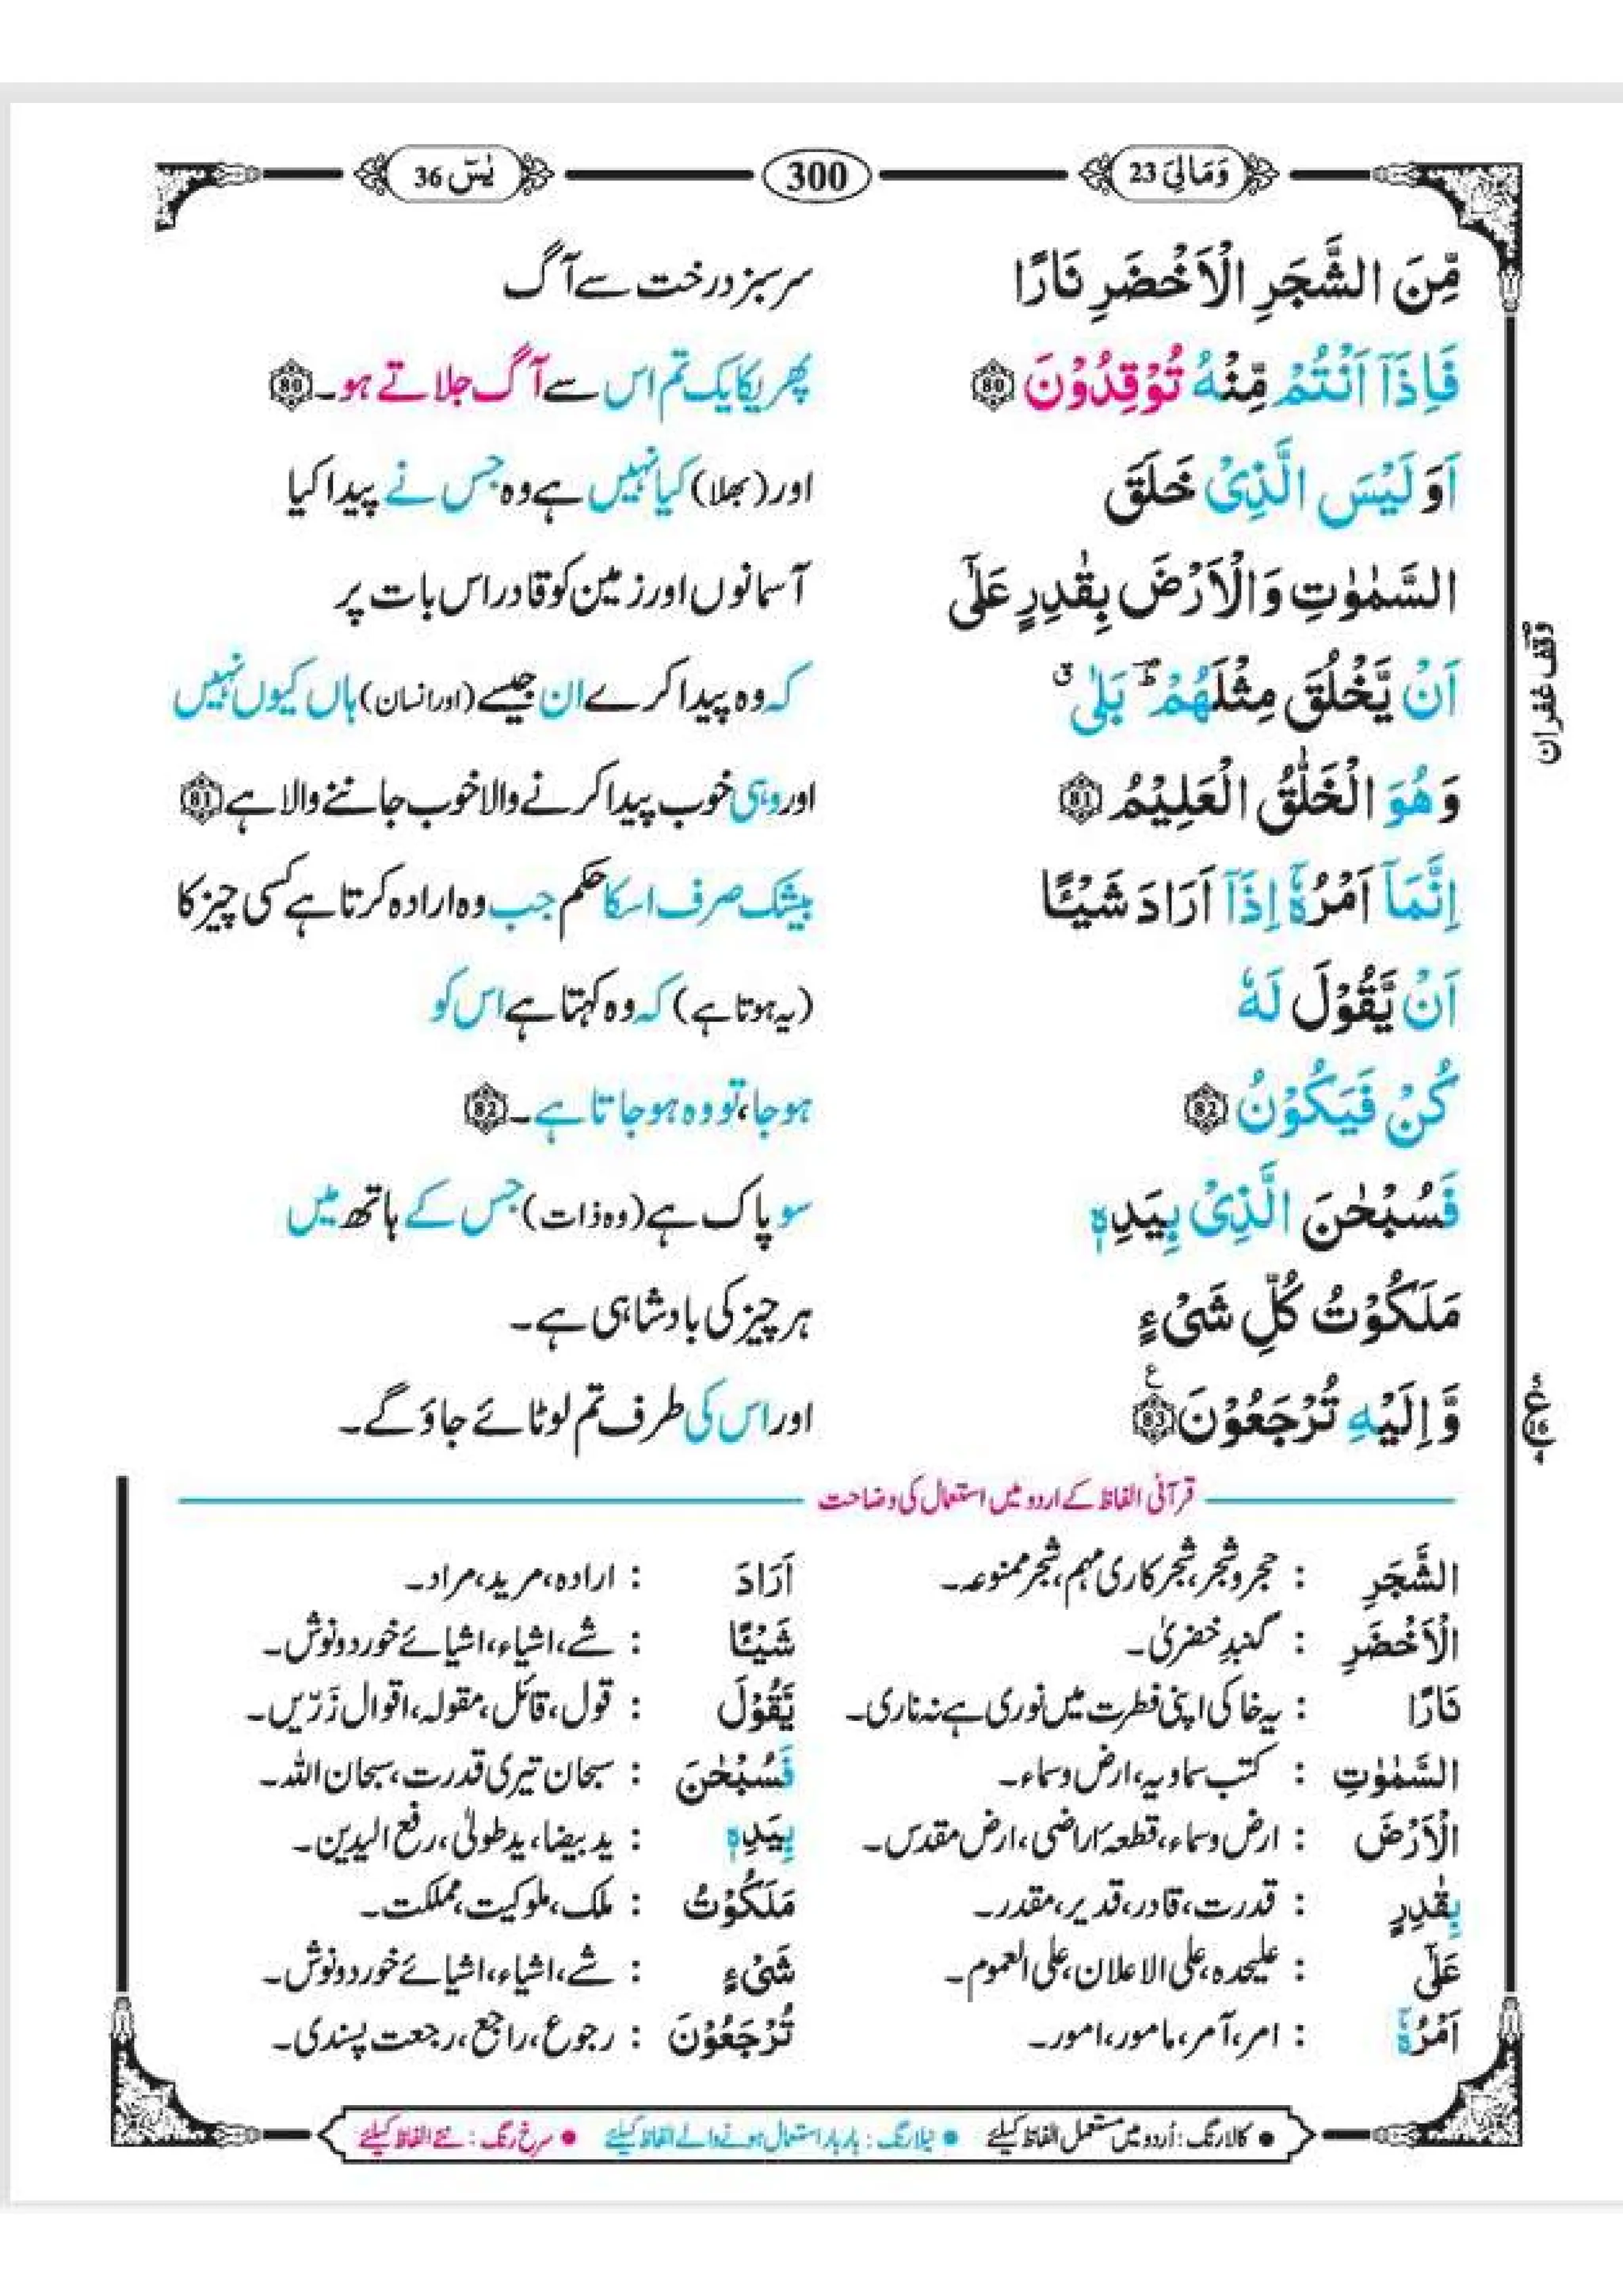 وَمَالِیَ 23
300
یٰسٓ 36
مِّنَ الشَّجَرِ الْاَخْضَرِ نَارًا
سرسبز درخت سے آگ
فَاِذَاۤ اَنْتُمْ مِّنْهُ تُوْقِدُوْنَ 80
پھر یکایک تم اس سے آگ جلاتے ہو۔ 80
اَوَلَیْسَ الَّذِیْ خَلَقَ
اور (بھلا) کیا نہیں ہے وہ جس نے پیدا کیا
السَّمٰوٰتِ وَالْاَرْضَ بِقٰدِرٍ عَلٰۤی
آسمانوں اور زمین کو قادر اس بات پر
اَنْ یَّخْلُقَ مِثْلَهُمْ ؕ بَلٰی ۗ
کہ وہ پیدا کرے ان جیسے (اور انسان) ہاں کیوں نہیں
وقف غفران
وَهُوَ الْخَلّٰقُ الْعَلِیْمُ 81
اور وہی خوب پیدا کرنے والا خوب جاننے والا ہے 81
اِنَّمَاۤ اَمْرُهٗۤ اِذَاۤ اَرَادَ شَیْـًٔا
بیشک صرف اسکا حکم جب وہ ارادہ کرتا ہے کسی چیز کا
اَنْ یَّقُوْلَ لَهٗ
(یہ ہوتا ہے) کہ وہ کہتا ہے اس کو
كُنْ فَیَكُوْنُ 82
ہو جا، تو وہ ہو جاتا ہے۔ 82
فَسُبْحٰنَ الَّذِیْ بِیَدِهٖ
سو پاک ہے (وہ ذات) جس کے ہاتھ میں
مَلَكُوْتُ كُلِّ شَیْءٍ
ہر چیز کی بادشاہی ہے۔
وَّاِلَیْهِ تُرْجَعُوْنَ 83 ع
اور اس کی طرف تم لوٹائے جاؤ گے۔
قرآنی الفاظ کے اردو میں استعمال کی وضاحت
الشَّجَرِ : حجر و شجر، شجرکاری مہم، شجر ممنوعہ۔
الْاَخْضَرِ : گنبدِ خضریٰ۔
نَارًا : یہ خاکی اپنی فطرت میں نوری ہے نہ ناری۔
السَّمٰوٰتِ : کتب سماویہ، ارض و سماء۔
الْاَرْضَ : ارض و سماء، قطعہ اراضی، ارض مقدس۔
بِقٰدِرٍ : قدرت، قادر، قدیر، مقدر۔
عَلٰۤی : علیحدہ، علی الاعلان، علی العموم۔
اَمْرُهٗۤ : امر، آمر، مامور، امور۔
اَرَادَ : ارادہ، مرید، مراد۔
شَیْـًٔا : شے، اشیاء، اشیائے خورد و نوش۔
یَّقُوْلَ : قول، قائل، مقولہ، اقوال زَرّیں۔
فَسُبْحٰنَ : سبحان تیری قدرت، سبحان اللہ۔
بِیَدِهٖ : ید بیضا، ید طولیٰ، رفع الیدین۔
مَلَكُوْتُ : ملک، ملوکیت، مملکت۔
شَیْءٍ : شے، اشیاء، اشیائے خورد و نوش۔
تُرْجَعُوْنَ : رجوع، راجع، رجعت پسندی۔
• کالا رنگ : اُردو میں مستعمل الفاظ کیلئے • نیلا رنگ : بار بار استعمال ہونے والے الفاظ کیلئے • سرخ رنگ : نئے الفاظ کیلئے